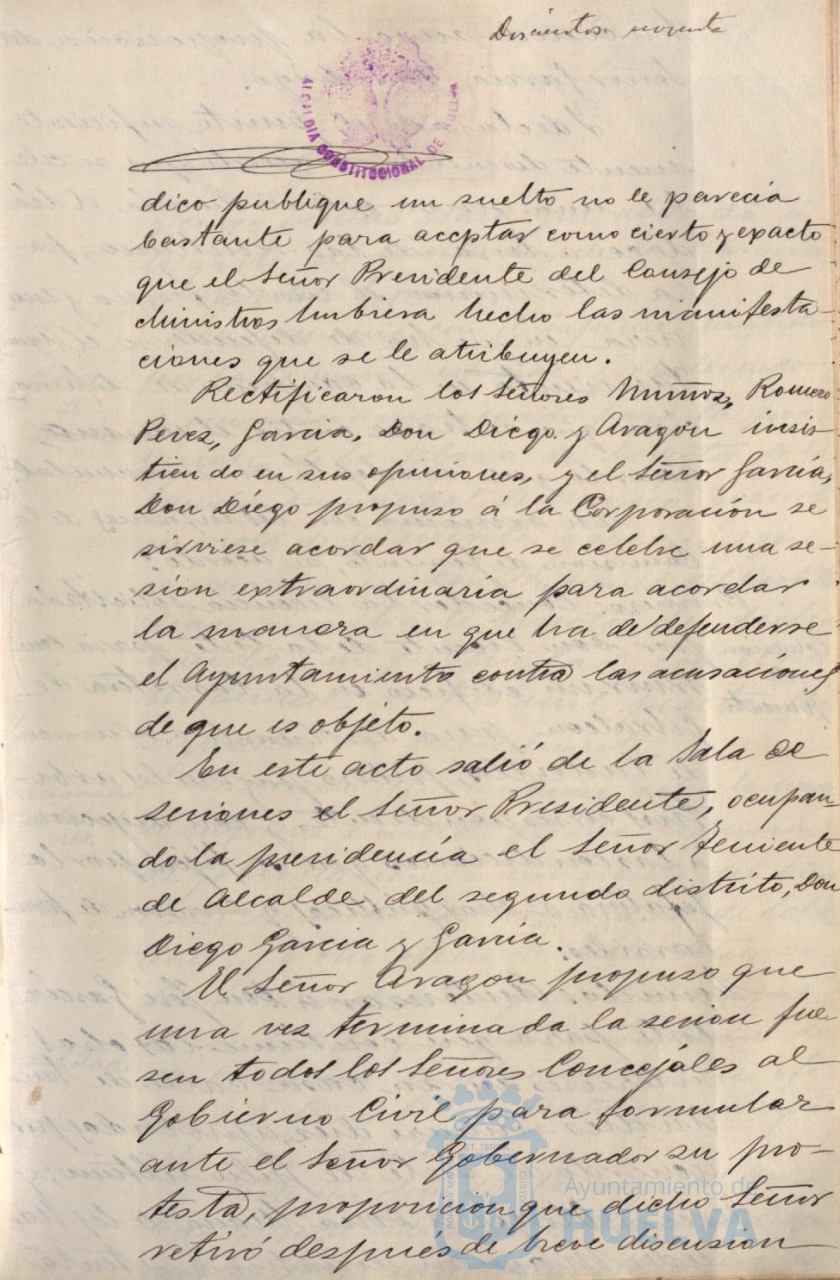 Doscientos noventa
ALCALDIA CONSTITUCIONAL DE HUELVA
dico publique un suelto no le parecia
bastante para aceptar como cierto y exacto
que el Señor Presidente del Consejo de
Ministros hubiera hecho las manifesta-
ciones que se le atribuyen.
Rectificaron los Señores Muñoz, Romero
Perez, Garcia, Don Diego y Aragon insis-
tiendo en sus opiniones, y el Señor Garcia,
Don Diego propuso á la Corporación se
sirviese acordar que se celebre una se-
sion extraordinaria para acordar
la manera en que ha de defenderse
el Ayuntamiento contra las acusaciones
de que es objeto.
En este acto salió de la Sala de
sesiones el Señor Presidente, ocupan-
do la presidencia el Señor Teniente
de Alcalde del segundo distrito, Don
Diego Garcia y Garcia.
El Señor Aragon propuso que
una vez terminada la sesion fue
sen todos los Señores Concejales al
Gobierno Civil para formular
ante el Señor Gobernador su pro-
testa, proposicion que dicho Señor
retiró después de breve discusion
Ayuntamiento de
HUELVA